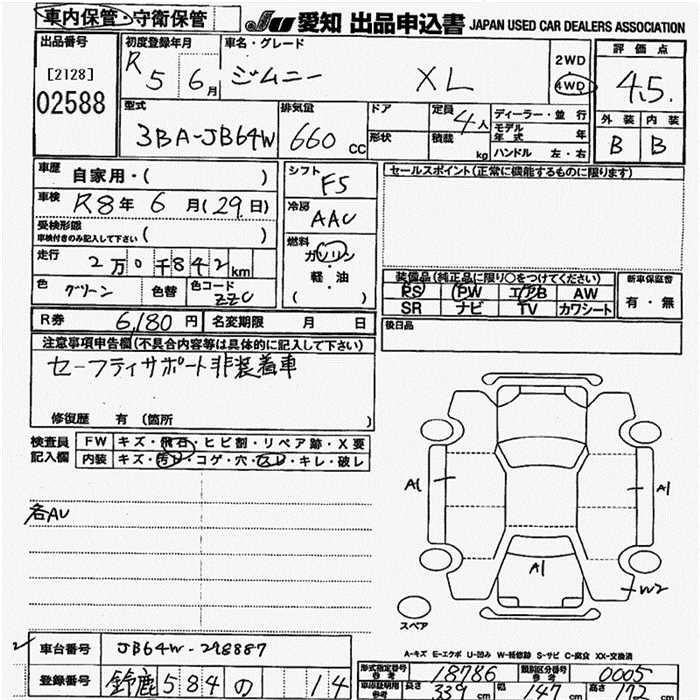 車内保管・守衛保管
JU 愛知 出品申込書 JAPAN USED CAR DEALERS ASSOCIATION
出品番号
[2128]
02588
初度登録年月
R 5 6月
車名・グレード
ジムニー XL
2WD
4WD
評価点
4.5.
外装 内装
B B
型式
3BA-JB64W
排気量
660 CC
ドア
形状
定員 4人
積載 kg
ディーラー・並行
モデル年式 年
ハンドル 左・右
車歴 自家用・( )
車検 R8年 6月(29日)
受検形態
車検付きのみ記入して下さい ( )
走行 2万0千842km
色 グリーン 色替 色コード ZZC
シフト F5
冷房 AAC
燃料
ガソリン
・
軽・油
( )
セールスポイント(正常に機能するものに限ります)
装備品(純正品に限り○をつけてください)
PS PW エアB AW
SR ナビ TV カワシート
新車保証書
有・無
R券 6,180円 名変期限 月 日
後日品
注意事項申告欄(不具合内容等は具体的に記入して下さい)
セーフティサポート非装着車
修復歴 有 〔箇所 〕
検査員記入欄
FW キズ・飛石・ヒビ割・リペア跡・X要
内装 キズ・汚レ・コゲ・穴・スレ・キレ・破レ
各AU
A1
A1
A1
W2
スペア
A-キズ E-エクボ U-凹み W-補修跡 S-サビ C-腐食 XX-交換済
車台番号 JB64W-298887
登録番号 鈴鹿584の 14
形式指定番号 参考 18786 類別区分番号 参考 0005
車庫証明用 参考 長さ 339cm 幅 147cm 高さ 172cm